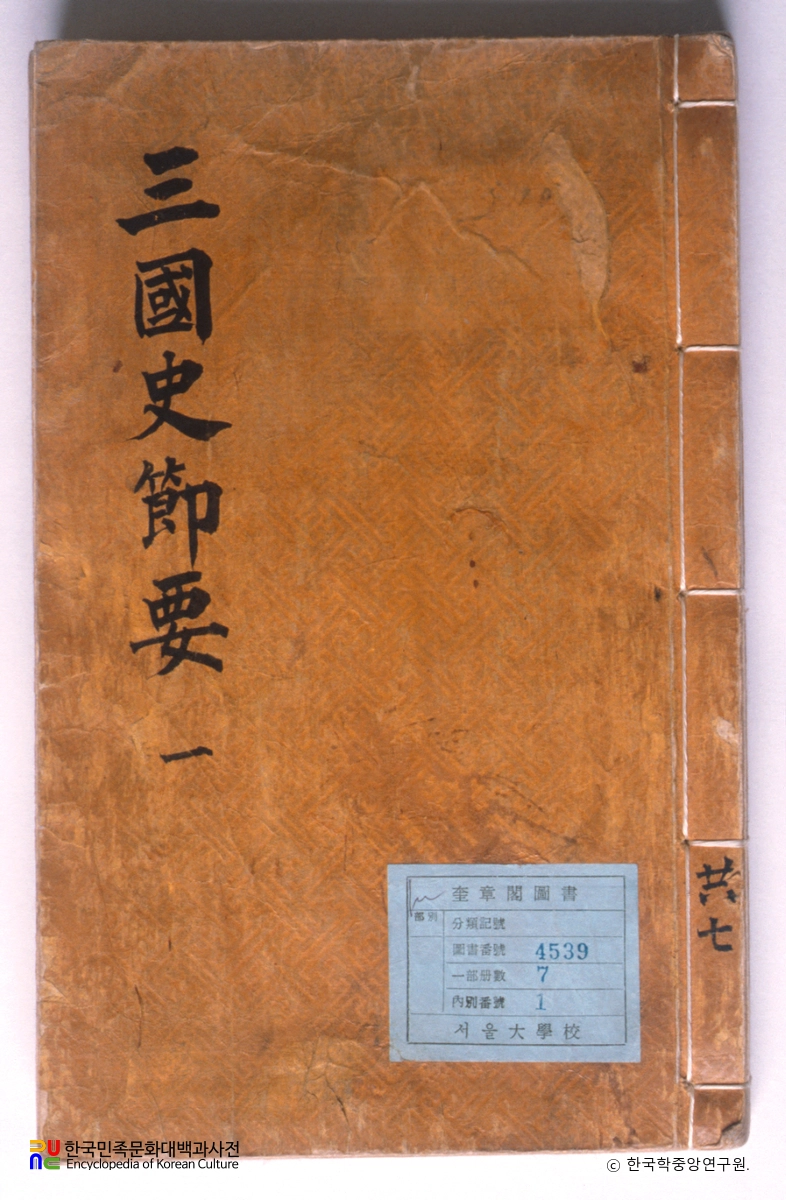 三國史節要 一
共七
奎章閣圖書
部別
分類記號
圖書番號 4539
一部册數 7
內別番號 1
서울大學校
한국민족문화대백과사전
Encyclopedia of Korean Culture
ⓒ 한국학중앙연구원.